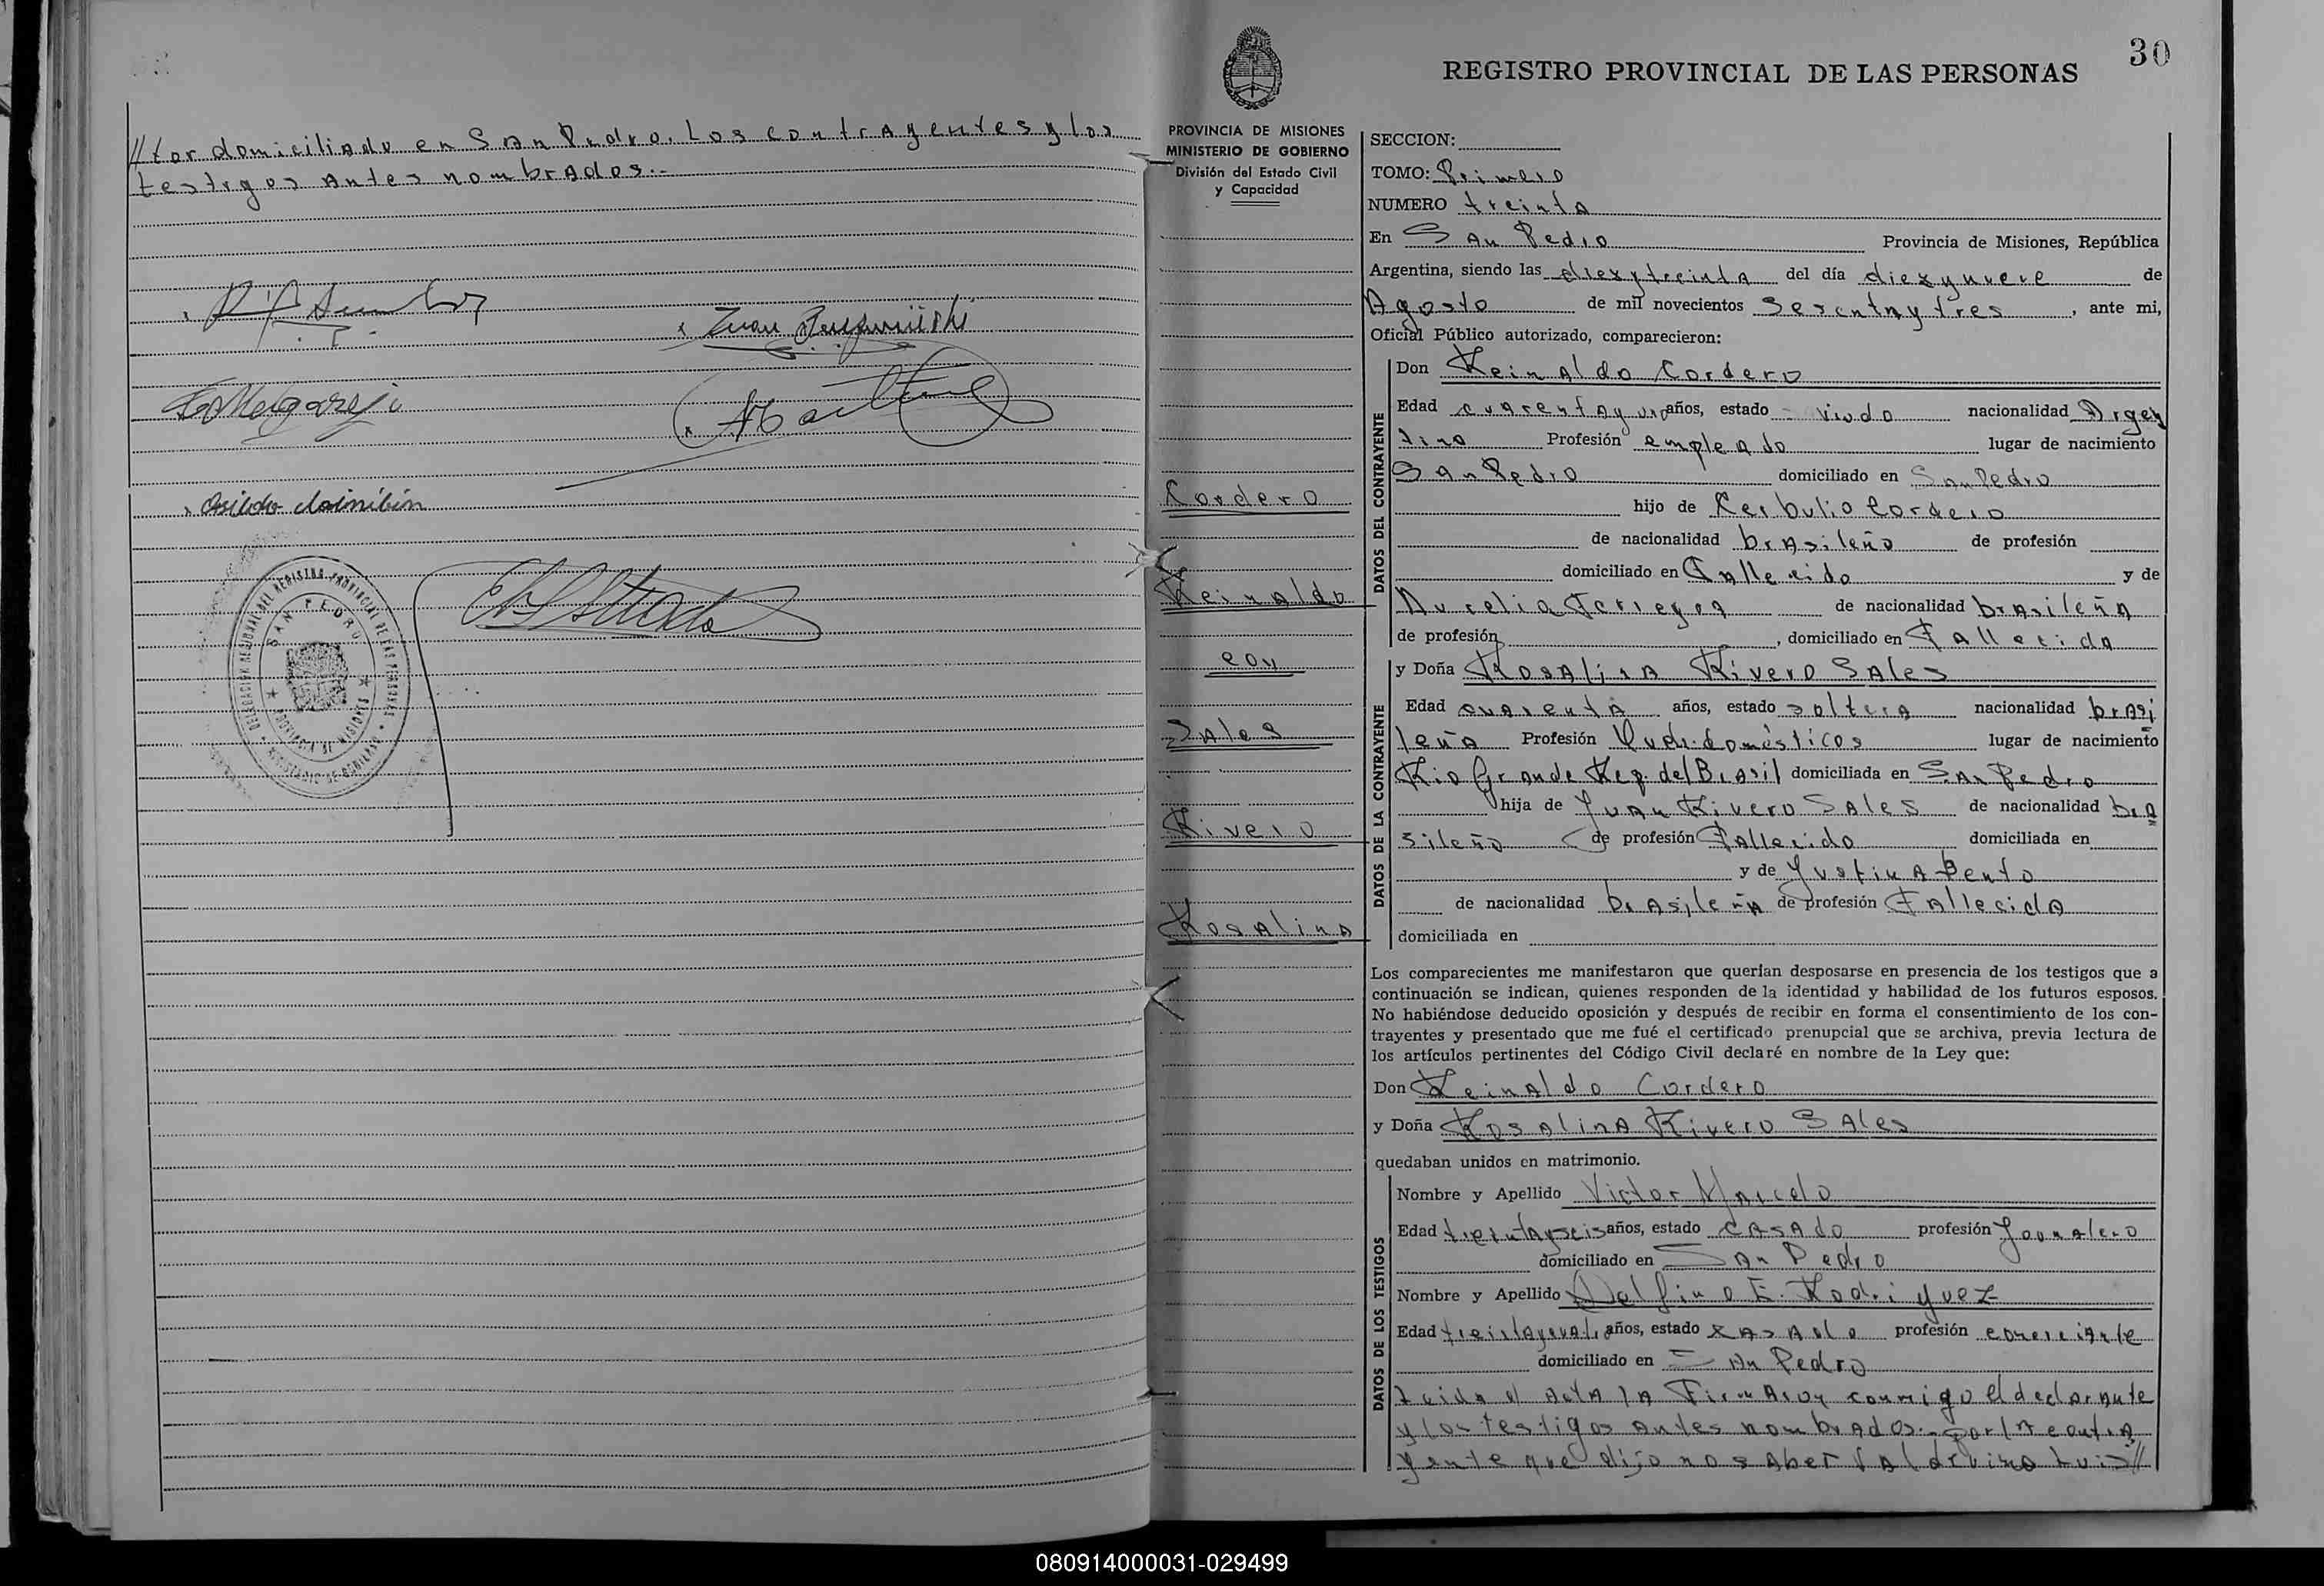 //tor domiciliado en San Pedro. Los contrayentes y los
testigos antes nombrados.-
Juan
DELEGACION REGIONAL DEL REGISTRO PROVINCIAL DE LAS PERSONAS
SAN PEDRO
PROVINCIA DE MISIONES
MINISTERIO DE GOBIERNO
30
REGISTRO PROVINCIAL DE LAS PERSONAS
PROVINCIA DE MISIONES
MINISTERIO DE GOBIERNO
División del Estado Civil
y Capacidad
Cordero
Reinaldo
con
Sales
Rivero
Rosalina
SECCION:
TOMO: Primero
NUMERO treinta
En San Pedro Provincia de Misiones, República
Argentina, siendo las diez y treinta del día diez y nueve de
Agosto de mil novecientos Sesenta y tres, ante mi,
Oficial Público autorizado, comparecieron:
DATOS DEL CONTRAYENTE
Don Reinaldo Cordero
Edad cuarenta y uno años, estado - viudo nacionalidad Argen
tino Profesión empleado lugar de nacimiento
San Pedro domiciliado en San Pedro
hijo de Cordero
de nacionalidad brasileño de profesión
domiciliado en Fallecido y de
Aurelia Ferreyra de nacionalidad brasileña
de profesión, domiciliado en Fallecida
DATOS DE LA CONTRAYENTE
y Doña Rosalina Rivero Sales
Edad cuarenta años, estado soltera nacionalidad brasi
leña Profesión Qued. domésticos lugar de nacimiento
Rio Grande Rep. del Brasil domiciliada en San Pedro
hija de Juan Rivero Sales de nacionalidad bra
sileño de profesión Fallecido domiciliada en
y de Justina Bento
de nacionalidad brasileña de profesión Fallecida
domiciliada en
Los comparecientes me manifestaron que querían desposarse en presencia de los testigos que a
continuación se indican, quienes responden de la identidad y habilidad de los futuros esposos.
No habiéndose deducido oposición y después de recibir en forma el consentimiento de los con-
trayentes y presentado que me fué el certificado prenupcial que se archiva, previa lectura de
los artículos pertinentes del Código Civil declaré en nombre de la Ley que:
Don Reinaldo Cordero
y Doña Rosalina Rivero Sales
quedaban unidos en matrimonio.
DATOS DE LOS TESTIGOS
Nombre y Apellido Victor Marcelo
Edad treinta y seis años, estado casado profesión Jornalero
domiciliado en San Pedro
Nombre y Apellido Delfino E. Rodriguez
Edad años, estado casado profesión comerciante
domiciliado en San Pedro
Leida el acta la Firmaron conmigo el declarante
y los testigos antes nombrados.- por la contra
yente que dijo no saber
080914000031-029499